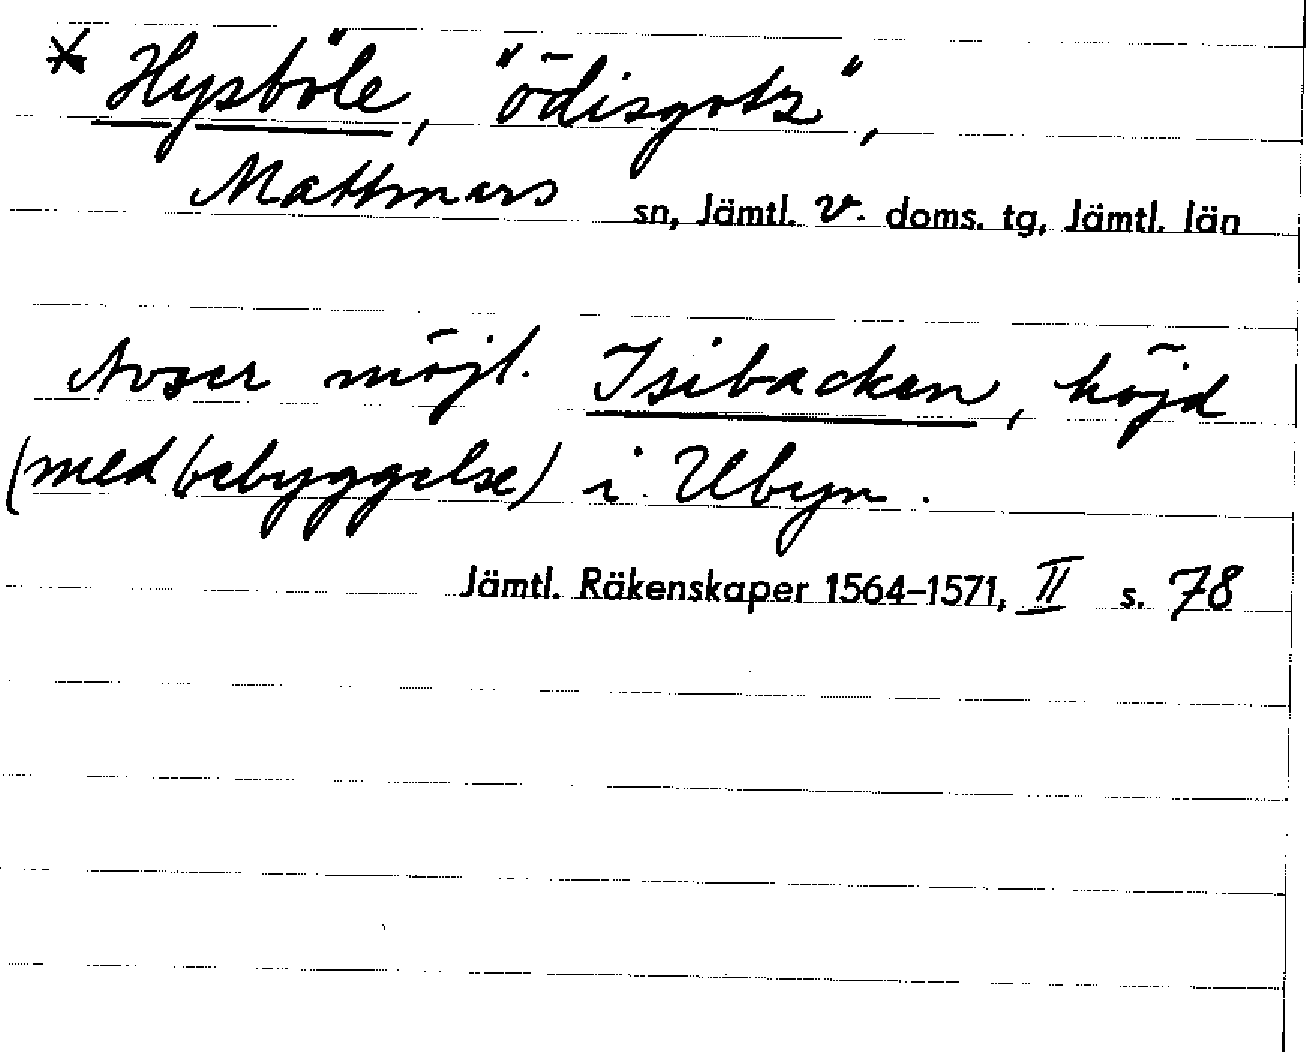 * Hysböle, "ödisgotz",
Mattmars sn, Jämtl. v. doms. tg, Jämtl. län
Avser möjl. Isibacken, höjd
(med bebyggelse) i Ubyn.
Jämtl. Räkenskaper 1564–1571, II s. 78